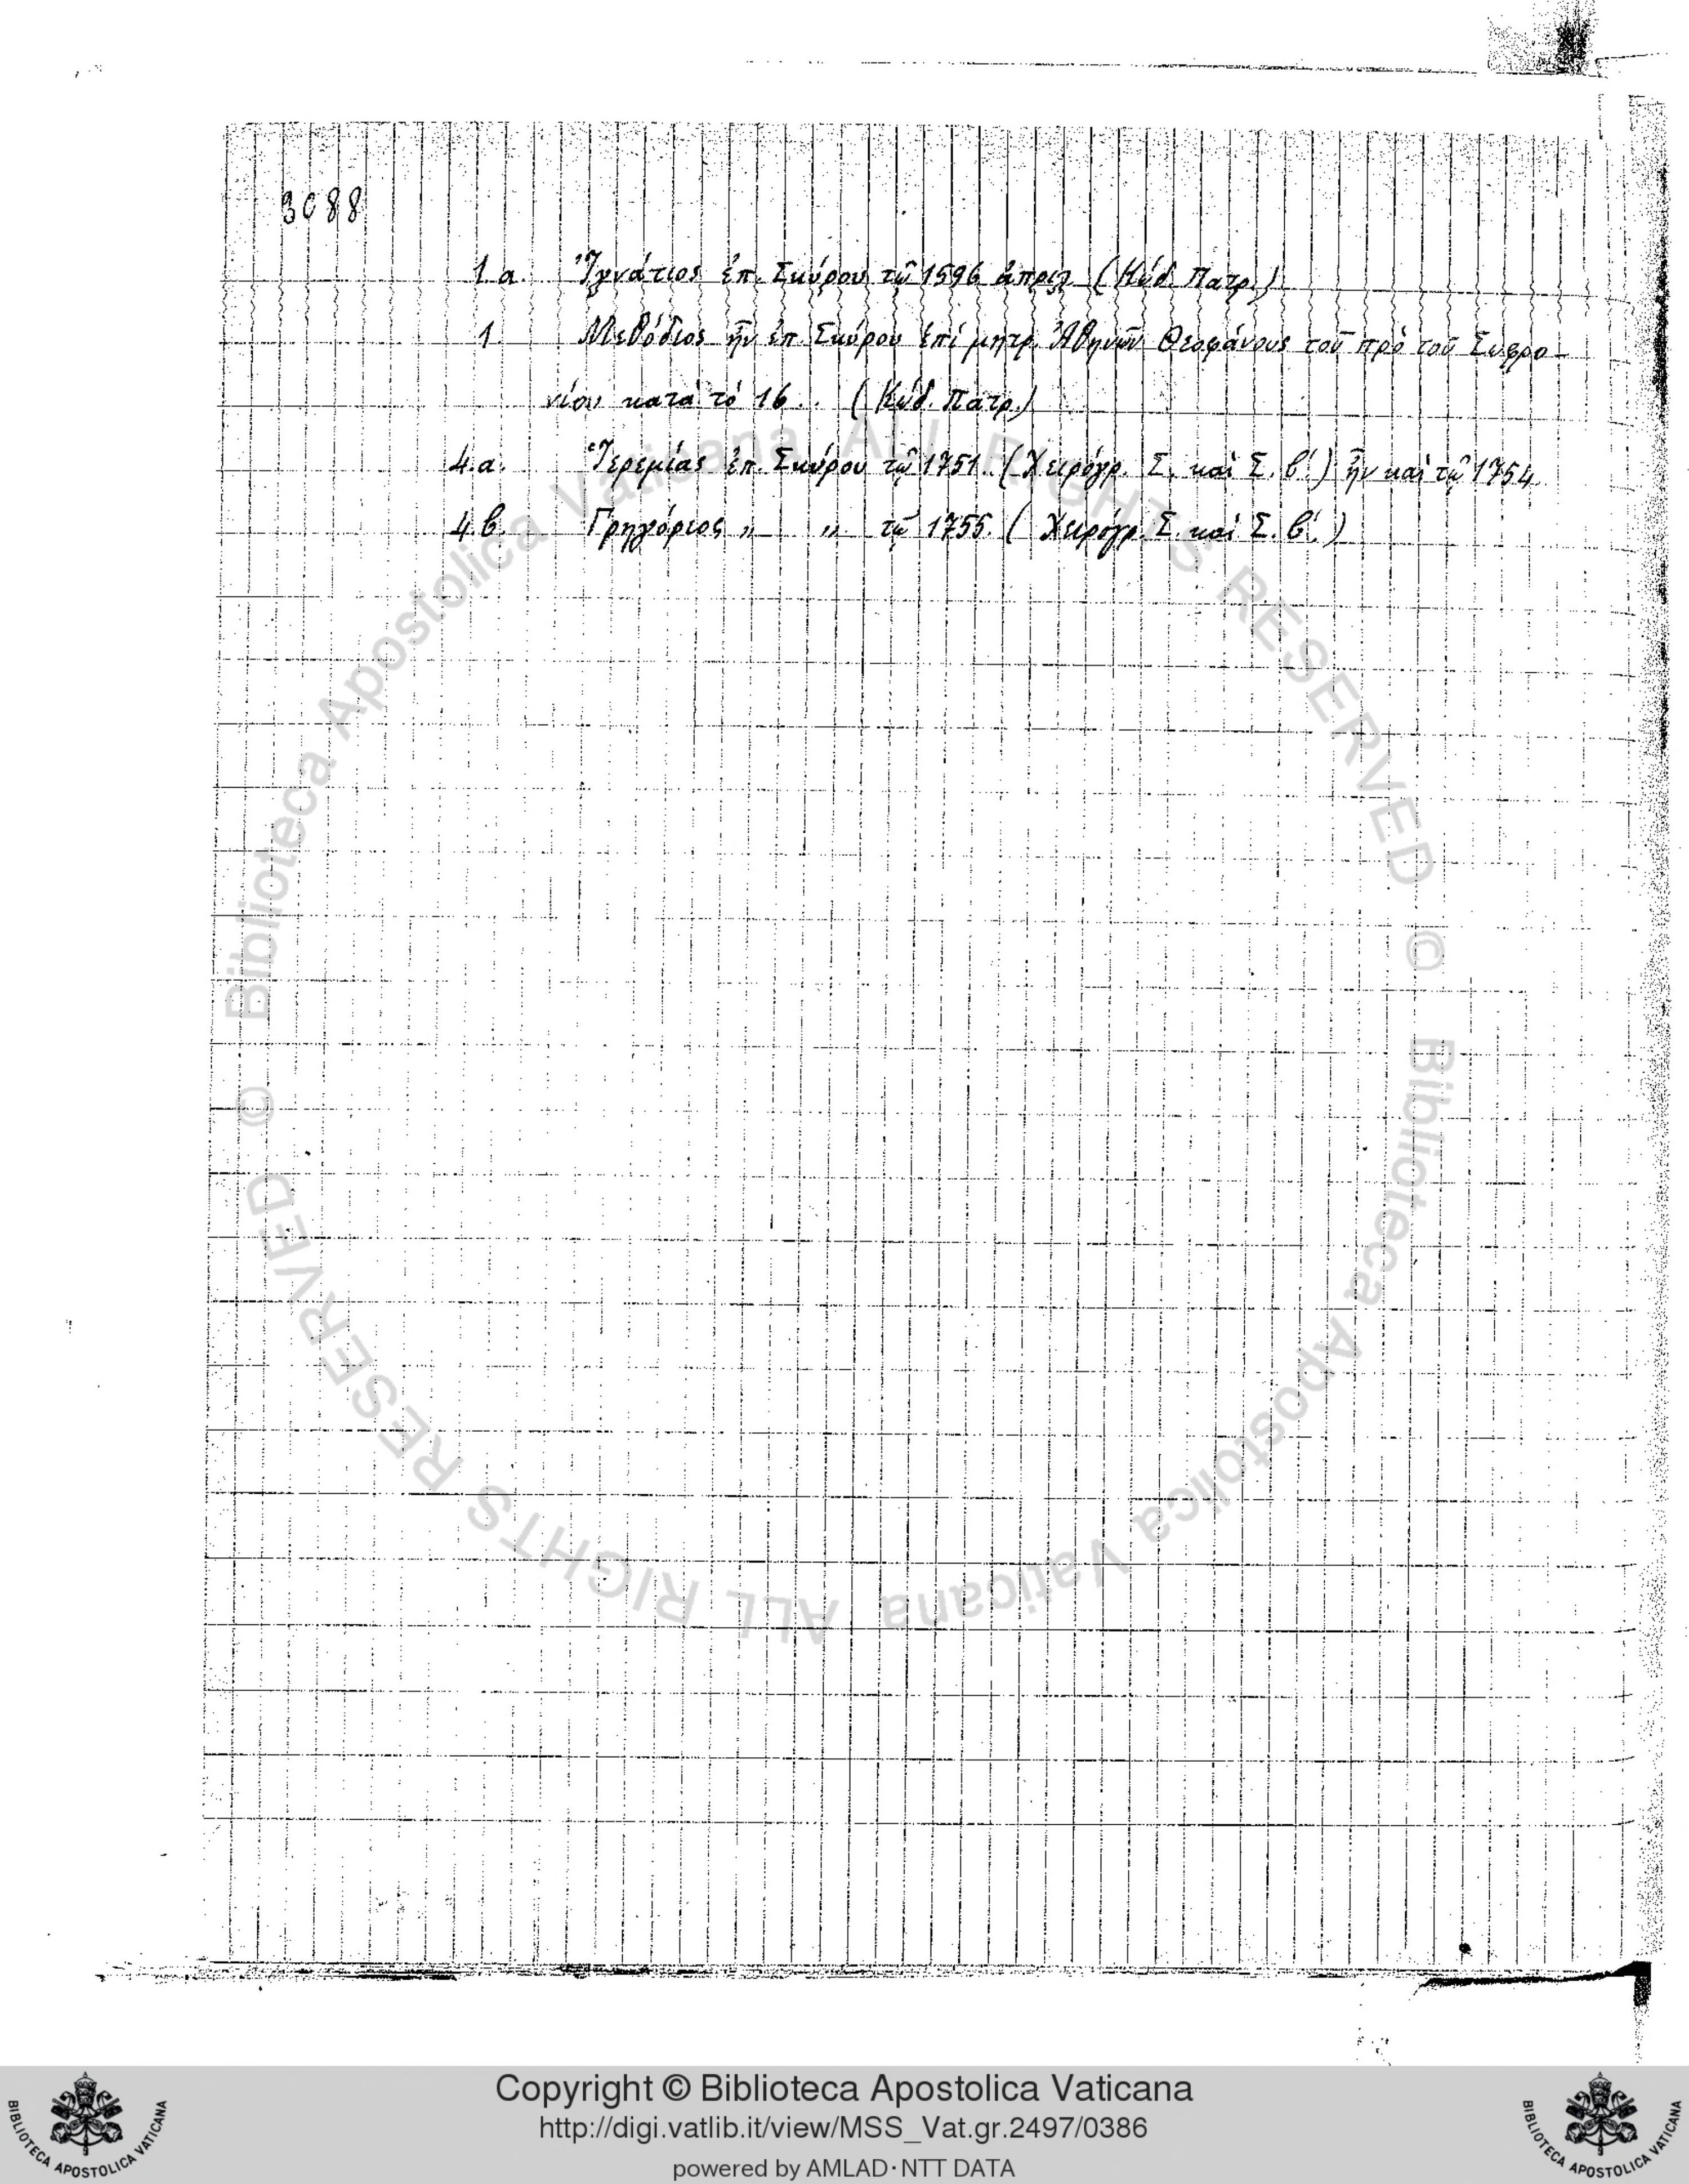 3088
1.a. Ἰγνάτιος ἐπ. Σκύρου τῷ 1596 ἀπριλ. (Κώδ. Πατρ.)
1 Μεθόδιος ἦν ἐπ. Σκύρου ἐπί μητρ. Ἀθηνῶν Θεοφάνους τοῦ πρὸ τοῦ Σωφρο-
νίου κατὰ τό 16.. (Κώδ. Πατρ.)
4.a. Ἱερεμίας ἐπ. Σκύρου τῷ 1751. (Χειρόγρ. Σ. καὶ Σ. β΄.) ἦν καὶ τῷ 1754
4.b. Γρηγόριος „ „ τῷ 1755. (Χειρόγρ. Σ. καὶ Σ. β΄.)
© Biblioteca Apostolica Vaticana ALL RIGHTS RESERVED
© Biblioteca Apostolica Vaticana ALL RIGHTS RESERVED
Copyright © Biblioteca Apostolica Vaticana
http://digi.vatlib.it/view/MSS_Vat.gr.2497/0386
powered by AMLAD·NTT DATA
BIBLIOTECA APOSTOLICA VATICANA
BIBLIOTECA APOSTOLICA VATICANA